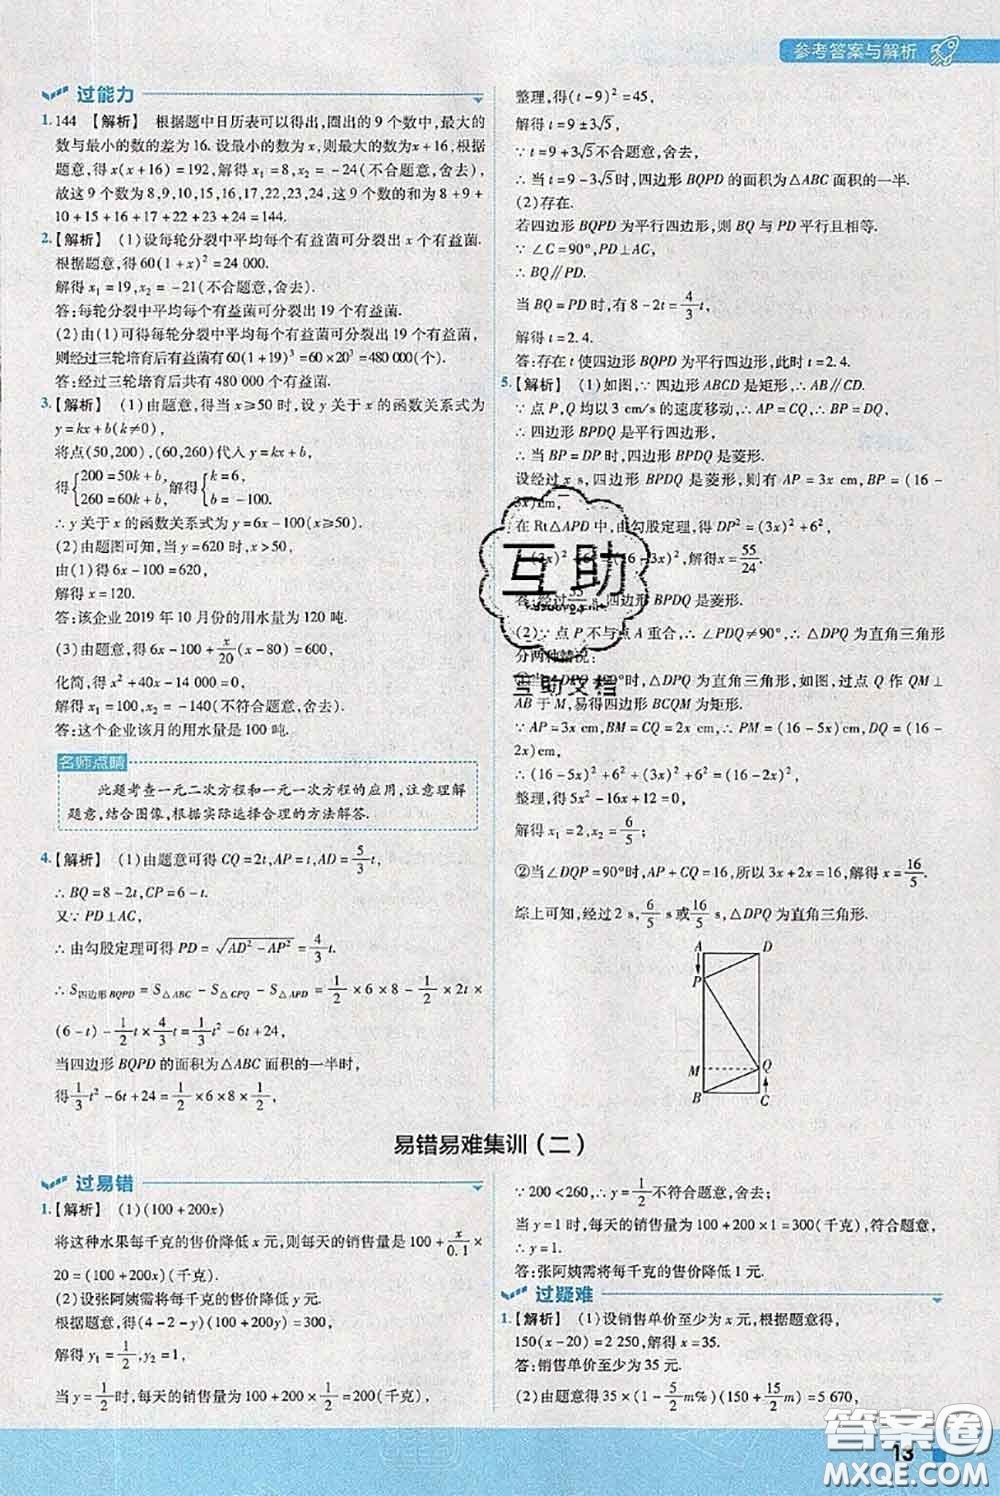 参考答案与解析
过能力
1. 144 【解析】 根据题中日历表可以得出,圈出的9个数中,最大的
数与最小的数的差为16. 设最小的数为x,则最大的数为x+16,根
据题意,得x(x+16)=192,解得x₁=8,x₂=-24(不合题意,舍去),
故这9个数为8,9,10,15,16,17,22,23,24,这9个数的和为8+9+
10+15+16+17+22+23+24=144.
2.【解析】 (1)设每轮分裂中平均每个有益菌可分裂出x个有益菌.
根据题意,得60(1+x)²=24 000.
解得x₁=19,x₂=-21(不合题意,舍去).
答:每轮分裂中平均每个有益菌可分裂出19个有益菌.
(2)由(1)可得每轮分裂中平均每个有益菌可分裂出19个有益菌,
则经过三轮培育后共有有益菌60(1+19)³=60×20³=480 000(个).
答:经过三轮培育后共有480 000个有益菌.
3.【解析】 (1)由题意,得当x≥50时,设y关于x的函数关系式为
y=kx+b(k≠0),
将点(50,200),(60,260)代入y=kx+b,
得{200=50k+b, 260=60k+b, 解得{k=6, b=-100,
∴y关于x的函数关系式为y=6x-100(x≥50).
(2)由题图可知,当y=620时,x>50,
由(1)得6x-100=620,
解得x=120.
答:该企业2019年10月份的用水量为120吨.
(3)由题意,得6x-100+x/20(x-80)=600,
化简,得x²+40x-14 000=0,
解得x₁=100,x₂=-140(不符合题意,舍去).
答:这个企业该月的用水量是100吨.
名师点睛
此题考查一元二次方程和一元一次方程的应用,注意理解
题意,结合图像,根据实际选择合理的方法解答.
4.【解析】 (1)由题意可得CQ=2t,AP=t,AD=5/3t,
∴BQ=8-2t,CP=6-t.
又∵PD⊥AC,
∴由勾股定理可得PD=√(AD²-AP²)=4/3t,
∴S四边形BQPD=S△ABC-S△CPQ-S△APD=1/2×6×8-1/2×2t×
(6-t)-1/2t×4/3t=1/3t²-6t+24,
当四边形BQPD的面积为△ABC面积的一半时,
得1/3t²-6t+24=1/2×6×8×1/2,
整理,得(t-9)²=45,
解得t=9±3√5,
∵t=9+3√5不合题意,舍去,
∴当t=9-3√5时,四边形BQPD的面积为△ABC面积的一半.
(2)存在.
若四边形BQPD为平行四边形,则BQ与PD平行且相等.
∵∠C=90°,PD⊥AC,
∴BQ∥PD.
当BQ=PD时,有8-2t=4/3t,
解得t=2.4.
答:存在t使四边形BQPD为平行四边形,此时t=2.4.
5.【解析】 (1)如图,∵四边形ABCD是矩形,∴AB∥CD.
∵点P,Q均以3 cm/s的速度移动,∴AP=CQ,∴BP=DQ,
∴四边形BPDQ是平行四边形,
∴当BP=DP时,四边形BPDQ是菱形.
设经过x s,四边形BPDQ是菱形,则有AP=3x cm,BP=(16-
3x)cm,
在Rt△APD中,由勾股定理,得DP²=(3x)²+6²,
解得x=55/24.
答:经过55/24 s,四边形BPDQ是菱形.
(2)∵点P不与点A重合,∴∠PDQ≠90°,∴△DPQ为直角三角形
分两种情况:
①当∠DPQ=90°时,△DPQ为直角三角形,如图,过点Q作QM⊥
AB于M,易得四边形BCQM为矩形.
∵AP=3x cm,BM=CQ=2x cm,∴PM=(16-5x)cm,DQ=(16-
2x)cm,
∴(16-5x)²+6²+(3x)²+6²=(16-2x)²,
整理,得5x²-16x+12=0,
解得x₁=2,x₂=6/5;
②当∠DQP=90°时,AP+CQ=16,所以3x+2x=16,解得x=16/5.
综上可知,经过2 s,6/5 s或16/5 s,△DPQ为直角三角形.
A D
P
M Q
B C
互助
互助文档
易错易难集训(二)
过易错
1.【解析】 (1)(100+200x)
将这种水果每千克的售价降低x元,则每天的销售量是100+x/0.1×
20=(100+200x)(千克).
(2)设张阿姨需将每千克的售价降低y元.
根据题意,得(4-2-y)(100+200y)=300,
解得y₁=1/2,y₂=1,
当y=1/2时,每天的销售量为100+200×1/2=200(千克),
∵200<260,∴y=1/2不符合题意,舍去;
当y=1时,每天的销售量为100+200×1=300(千克),符合题意,
∴y=1.
答:张阿姨需将每千克的售价降低1元.
过疑难
1.【解析】 (1)设销售单价至少为x元,根据题意得,
150(x-20)=2 250,解得x=35.
答:销售单价至少为35元.
(2)由题意得35×(1-5/2m%)(150+15/2m)=5 670,
13
答案圈
MXQE.COM